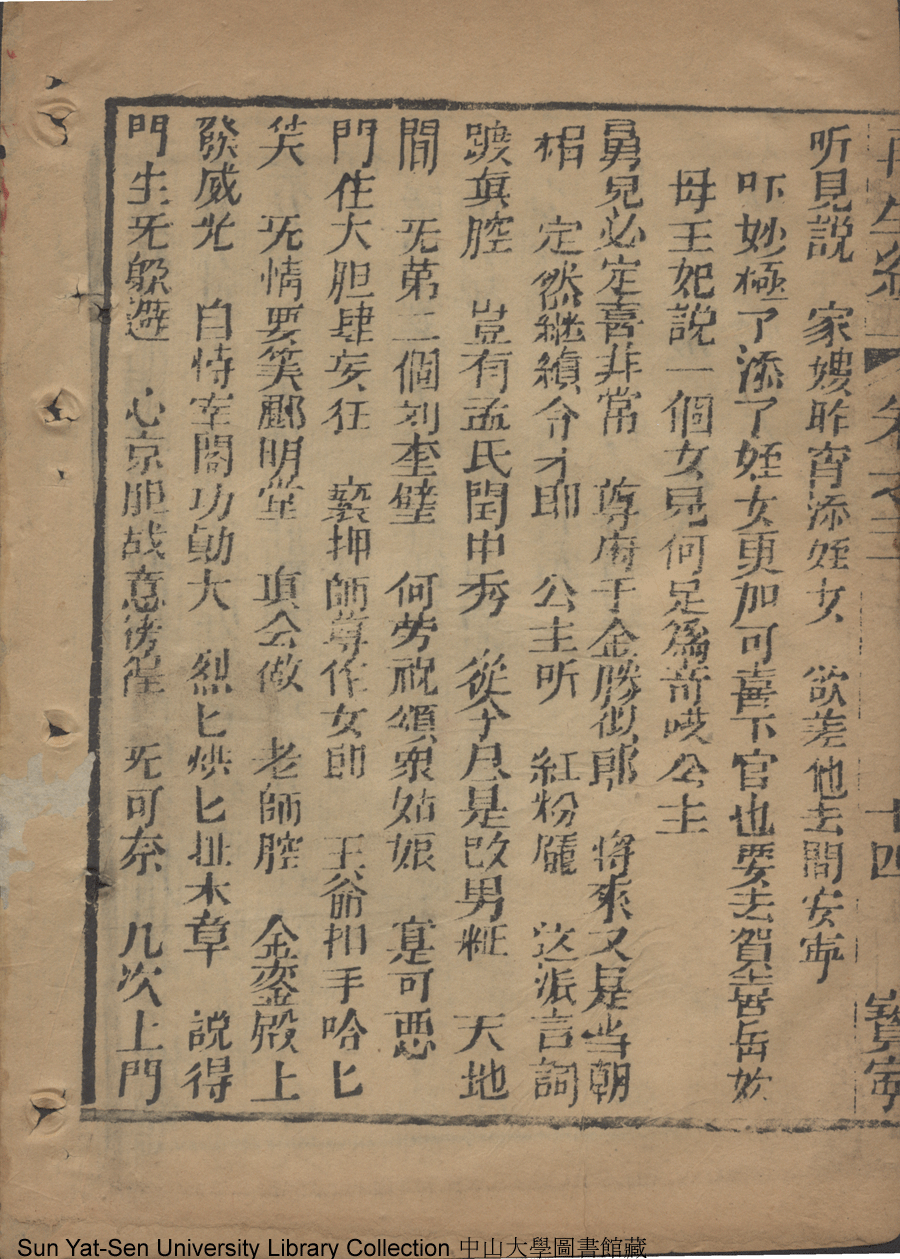 再生緣 卷之三 十四 寶寧
听見説 家嫂昨宵添姪女 欲差他去問安寧
吓妙極了添了姪女更加可喜下官也要去賀喜岳
母王妃説一個女児何足為奇哎公主
舅兒必定喜非常 尊府千金勝似郎 將來又是当朝
相 定然継續令才郎 公主听 紅粉龐 这派言詞
蹊真腔 豈有孟氏閨中秀 從今尽是改男粧 天地
間 旡第二個刘奎璧 何劳祝頌衆姑娘 寔可恶
門住大胆肆妄狂 褻押師尊作女郎 王爺扣手哈匕
笑 旡情要笑酈明堂 真会做 老師腔 金鑾殿上
發威光 自恃宰閣功勛大 烈匕烘匕扯本章 説得
門生旡躱避 心京胆战意徬徨 旡可奈 几次上門
Sun Yat-Sen University Library Collection 中山大學圖書館藏